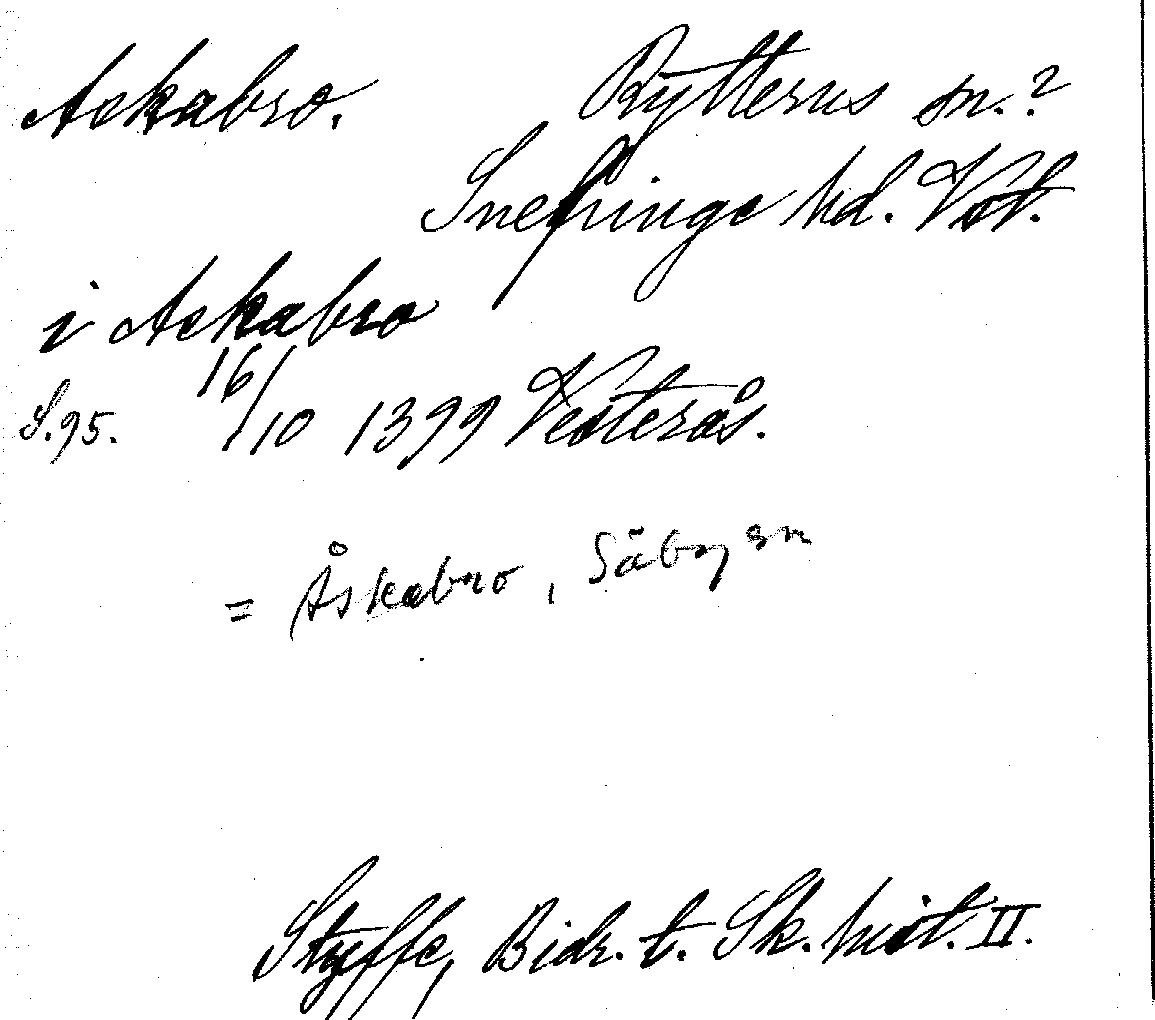 Askabro. Rytterus sn.?
Snefringe hd. Vstl.
i Askabro
S. 95. 16/10 1399 Vesterås.
= Åskabro, Säby sn
Styffe, Bidr. t. Sk. hist. II.